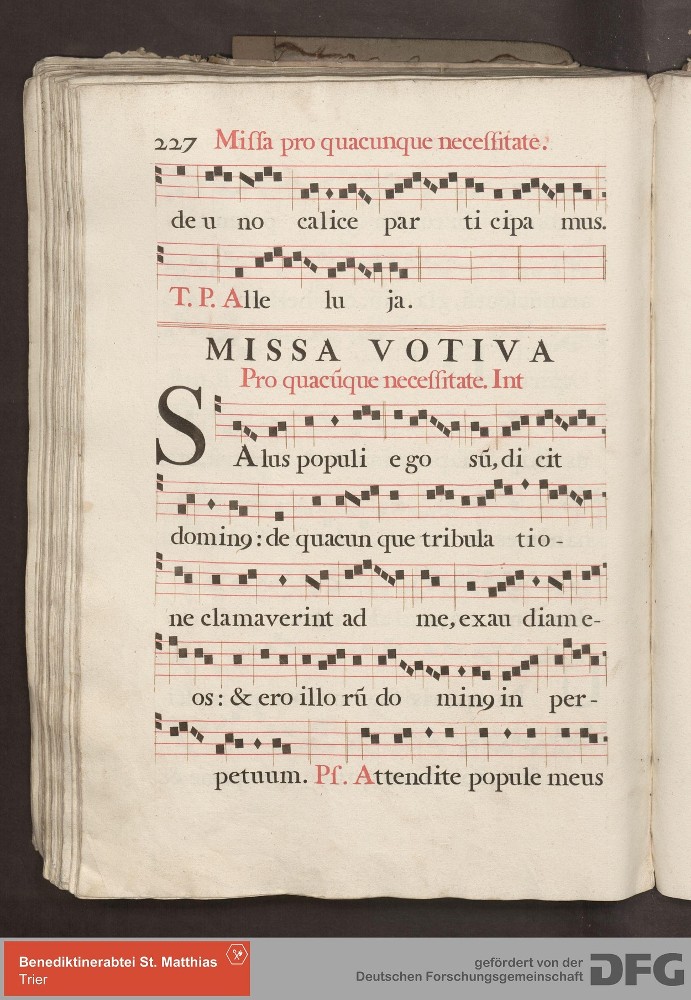 227 Miſſa pro quacunque neceſſitate.
de u no calice par ti cipa mus.
T. P. Alle lu ja.
MISSA VOTIVA
Pro quacūque neceſſitate. Int
SAlus populi ego sū, di cit
dominꝯ: de quacun que tribula tio-
ne clamaverint ad me, exau diam e-
os: & ero illo rū do minꝯ in per-
petuum. Pſ. Attendite popule meus
Benediktinerabtei St. Matthias
Trier
gefördert von der
Deutschen Forschungsgemeinschaft DFG